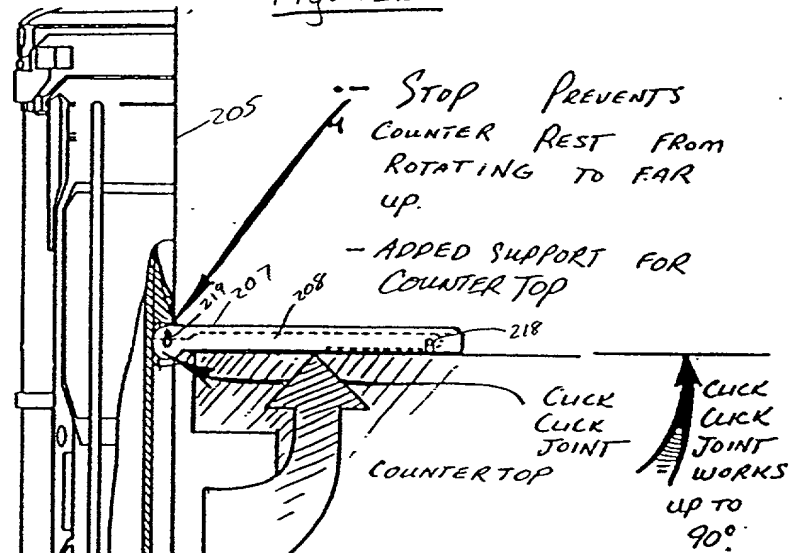 205
STOP PREVENTS
COUNTER REST FROM
ROTATING TO FAR
UP.
- ADDED SUPPORT FOR
COUNTER TOP
219
207
208
218
CLICK
CLICK
JOINT
COUNTERTOP
CLICK
CLICK
JOINT
WORKS
UP TO
90°